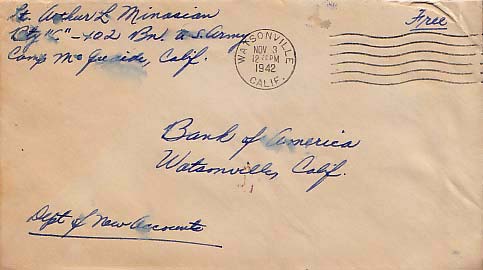 Lt. Arthur L Minasian
Bty "C" - 402 Bn. U.S. Army
Camp McQuaide, Calif.
Free
WATSONVILLE
NOV 3
12 PM
1942
CALIF.
Bank of America
Watsonville, Calif.
Dept of New Accounts